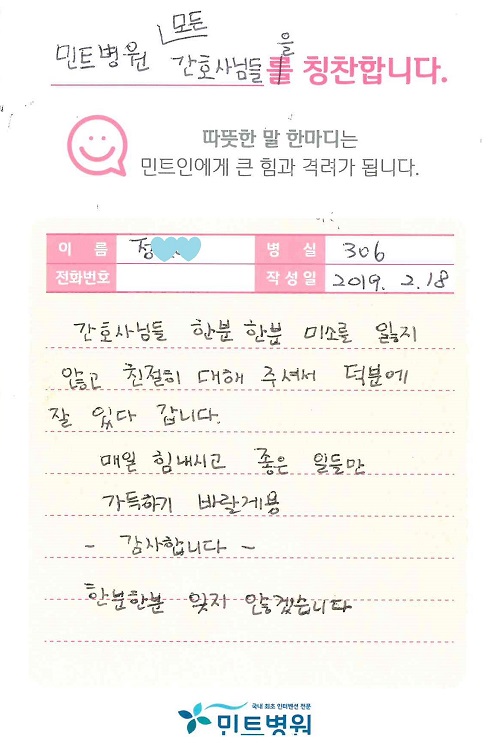 모든
민트병원 간호사님들을를 칭찬합니다.
따뜻한 말 한마디는
민트인에게 큰 힘과 격려가 됩니다.
이 름 정 병 실 306
전화번호 작성일 2019. 2. 18
간호사님들 한분 한분 미소를 잃지
않고 친절히 대해 주셔서 덕분에
잘 있다 갑니다.
매일 힘내시고 좋은 일들만
가득하기 바랄게용
- 감사합니다 -
한분한분 잊지 않겠습니다
국내 최초 인터벤션 전문
민트병원